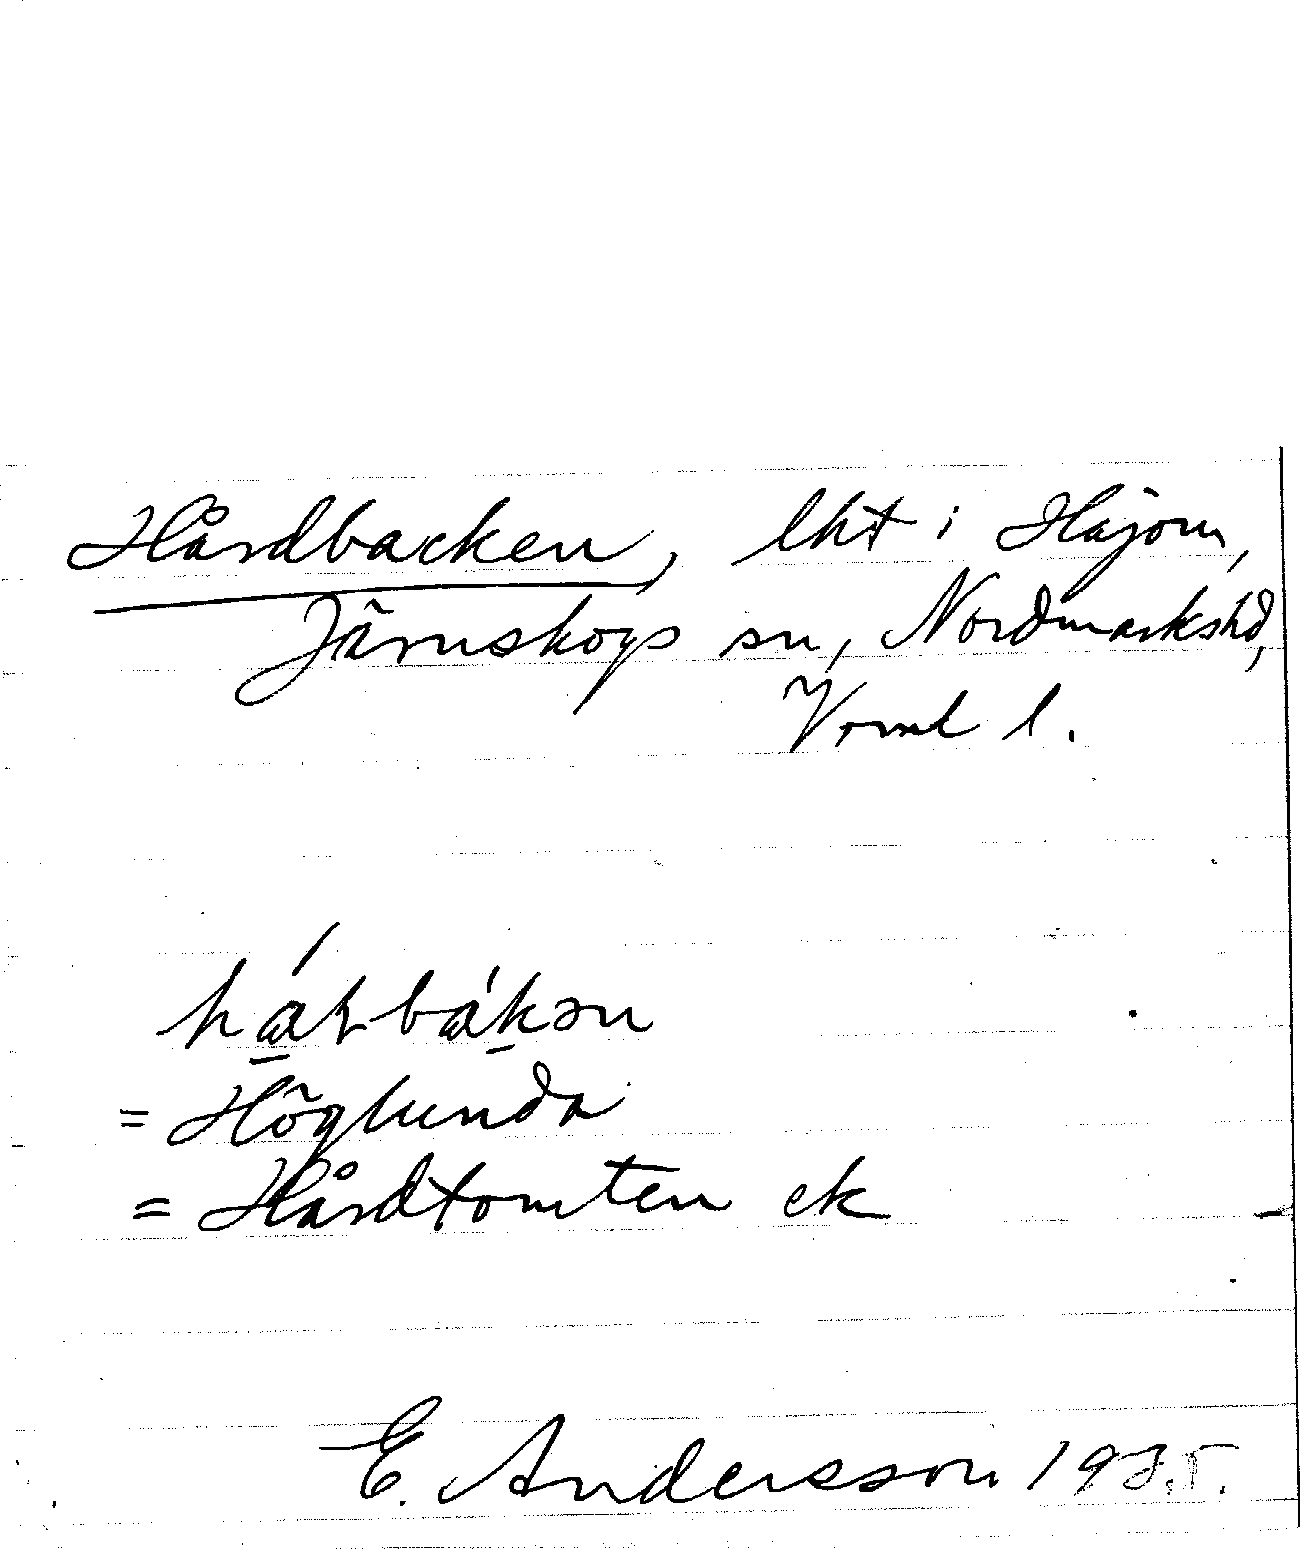 Hårdbacken, lht i Håjom,
Järnskogs sn, Nordmarkshd,
Vrml l.
= Höglunda
= Hårdtomten ek
E. Andersson 1935.